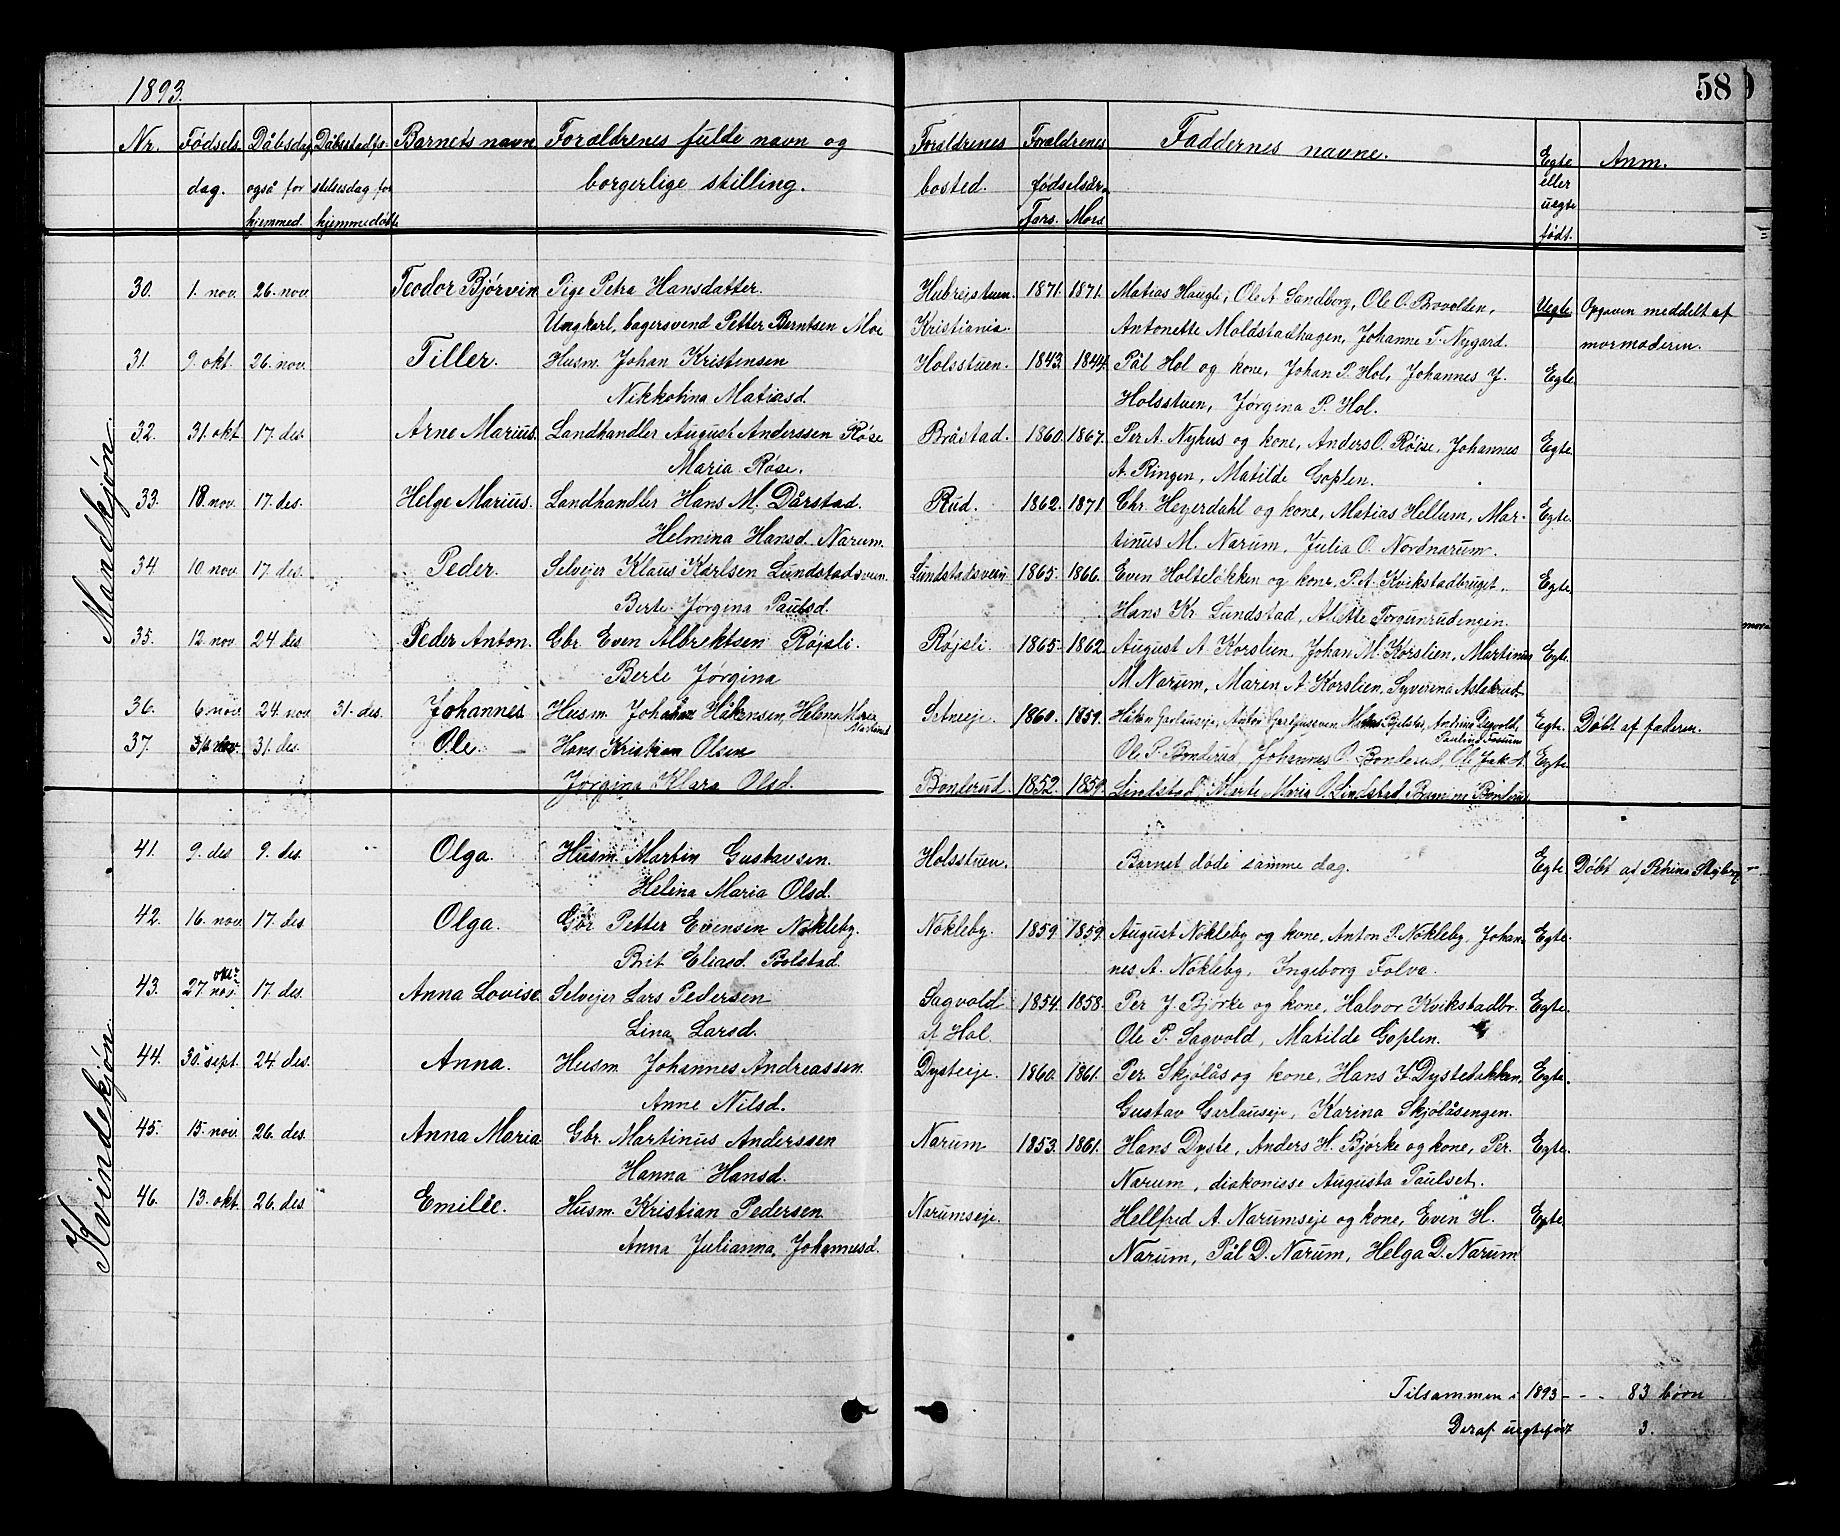 1893.
58
Nr. Fødsels- Dåbsdag Dåbsstadfæ- Barnets navn Forældrenes fulde navn og Forældrenes Forældrenes Faddernes navne. Egte Anm.
dag. også for stelsesdag for borgerlige stilling. bosted. fødselsår. eller
hjemmed. hjemmedøbte Fars. Mors uegte
født.
Mandkjøn.
30. 1. nov. 26. nov. Teodor Bjørvin Pige Petra Hansdatter. 1871. 1871. Matias Haugli, Ole A. Sandborg, Ole O. Brovolden, Uegte. Opgaven meddelt af
Ungkarl, bagersvend Petter Berntsen Moe Kristiania. Antonette Moldstadhagen, Johanne T. Nygard. mormoderen.
31. 9. okt. 26. nov. Tiller. Husm. Johan Kristensen Holsstuen. 1843. 1844. Pål Hol og kone, Johan P. Hol, Johannes J. Egte.
Nikkoline Matiasd. Holsstuen, Jørgina P. Hol.
32. 31. okt. 17. des. Arne Marius. Landhandler August Anderssen Røise Bråstad. 1860. 1867. Per A. Nyhus og kone, Anders O. Røise, Johannes Egte.
Maria Røise. A. Ringen, Matilde Goplen.
33. 18. nov. 17. des. Helge Marius. Landhandler Hans M. Dårstad. Rud. 1862. 1871. Chr. Heyerdahl og kone, Matias Hellum, Mar- Egte.
Helmina Hansd. Narum. tinus M. Narum, Julia O. Nordnarum.
34. 10. nov. 17. des. Peder. Selvejer Klaus Karlsen Lundstadsveen. Lundstadsveen 1865. 1866. Even Holteløkken og kone, P. A. Kvikstadbruget. Egte.
Berte Jørgina Paulsd. Hans Kr. Lundstad, Alette Torgunrudengen.
35. 12. nov. 24. des. Peder Anton. Gbr. Even Albrektsen Røjsli. Røjsli. 1865. 1862. August A. Korslien, Johan M. Korslien, Martinus Egte.
Berte Jørgina M. Narum, Maren A. Korslien, Syverina Aslakrud.
36. 6. nov. 24. nov. 31. des. Johannes Husm. Johan Håkensen, Helene Maria Martinsd. 1860. 1859. Håken Gerlauseje, Anton Egte. Døbt af faderen.
Paulina Fossum
37. nov. 31. des. Ole. Hans Kristian Olsen Ole P. Bonderud, Johannes O. Bonderud, Ole Jak. A. Egte.
Jørgina Klara Olsd. Bonderud. 1852. 1859. Lindstad, Marte Maria O. Lindstad, Bonderud
Kvindekjøn
41. 9. des. 9. des. Olga. Husm. Martin Gustavsen. Holsstuen. Barnet døde samme dag. Egte Døbt af Petrina
Helena Maria Olsd.
42. 16. nov. 17. des. Olga. Gbr. Petter Evensen Nøkleby. Nøkleby. 1859. 1859. August Nøkleby og kone, Anton P. Nøkleby, Johan- Egte.
Brit Eliasd. Bolstad. nes A. Nøkleby, Ingeborg Folva.
43. 27. okt. nov. 17. des. Anna Lovise. Selvejer Lars Pedersen Sagvold 1854. 1858. Per J. Bjørke og kone, Halvor Kvikstadbr. Egte.
Lina Larsd. af Hol. Ole P. Sagvold, Matilde Goplen.
44. 30. sept. 24. des. Anna. Husm. Johannes Andreassen Dysteeje. 1860. 1861. Per Skjølås og kone, Hans F. Dysteløkken, Egte.
Anne Nilsd. Gustav Gerlauseje, Karina Skjølåsengen.
45. 15. nov. 26. des. Anna Maria Gbr. Martinus Anderssen Narum 1853. 1861. Hans Dyste, Anders H. Bjørke og kone, Per Egte.
Hanna Hansd. Narum, diakonisse Augusta Paulset.
46. 13. okt. 26. des. Emilie. Husm. Kristian Pedersen Narumseje. Hellfred A. Narumseje og kone, Even H. Egte
Anna Julianna Johannesd. Narum, Pål D. Narum, Helga D. Narum
Tilsammen i 1893 - - - 83 børn
Deraf uegtefødt 3.